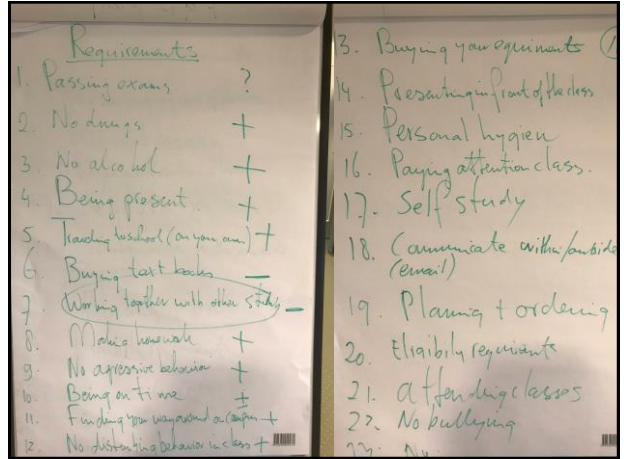 Requirements
1. Passing exams ?
2. No drugs +
3. No alcohol +
4. Being present +
5. Traveling to school (on your own) +
6. Buying text books −
7. Working together with other −
8. Making homework +
9. No agressive behavior +
10. Being on time ±
11. Finding your way around on campus +
12. No distracting behavior in class +
13. Buying your equiments
14. Presenting in front of the class
15. Personal hygien
16. Paying attention class.
17. Self study
18. Communicate within/outside
(email)
19. Planning + ordering
20. Eligibily requirements
21. attending classes
22. No bullying